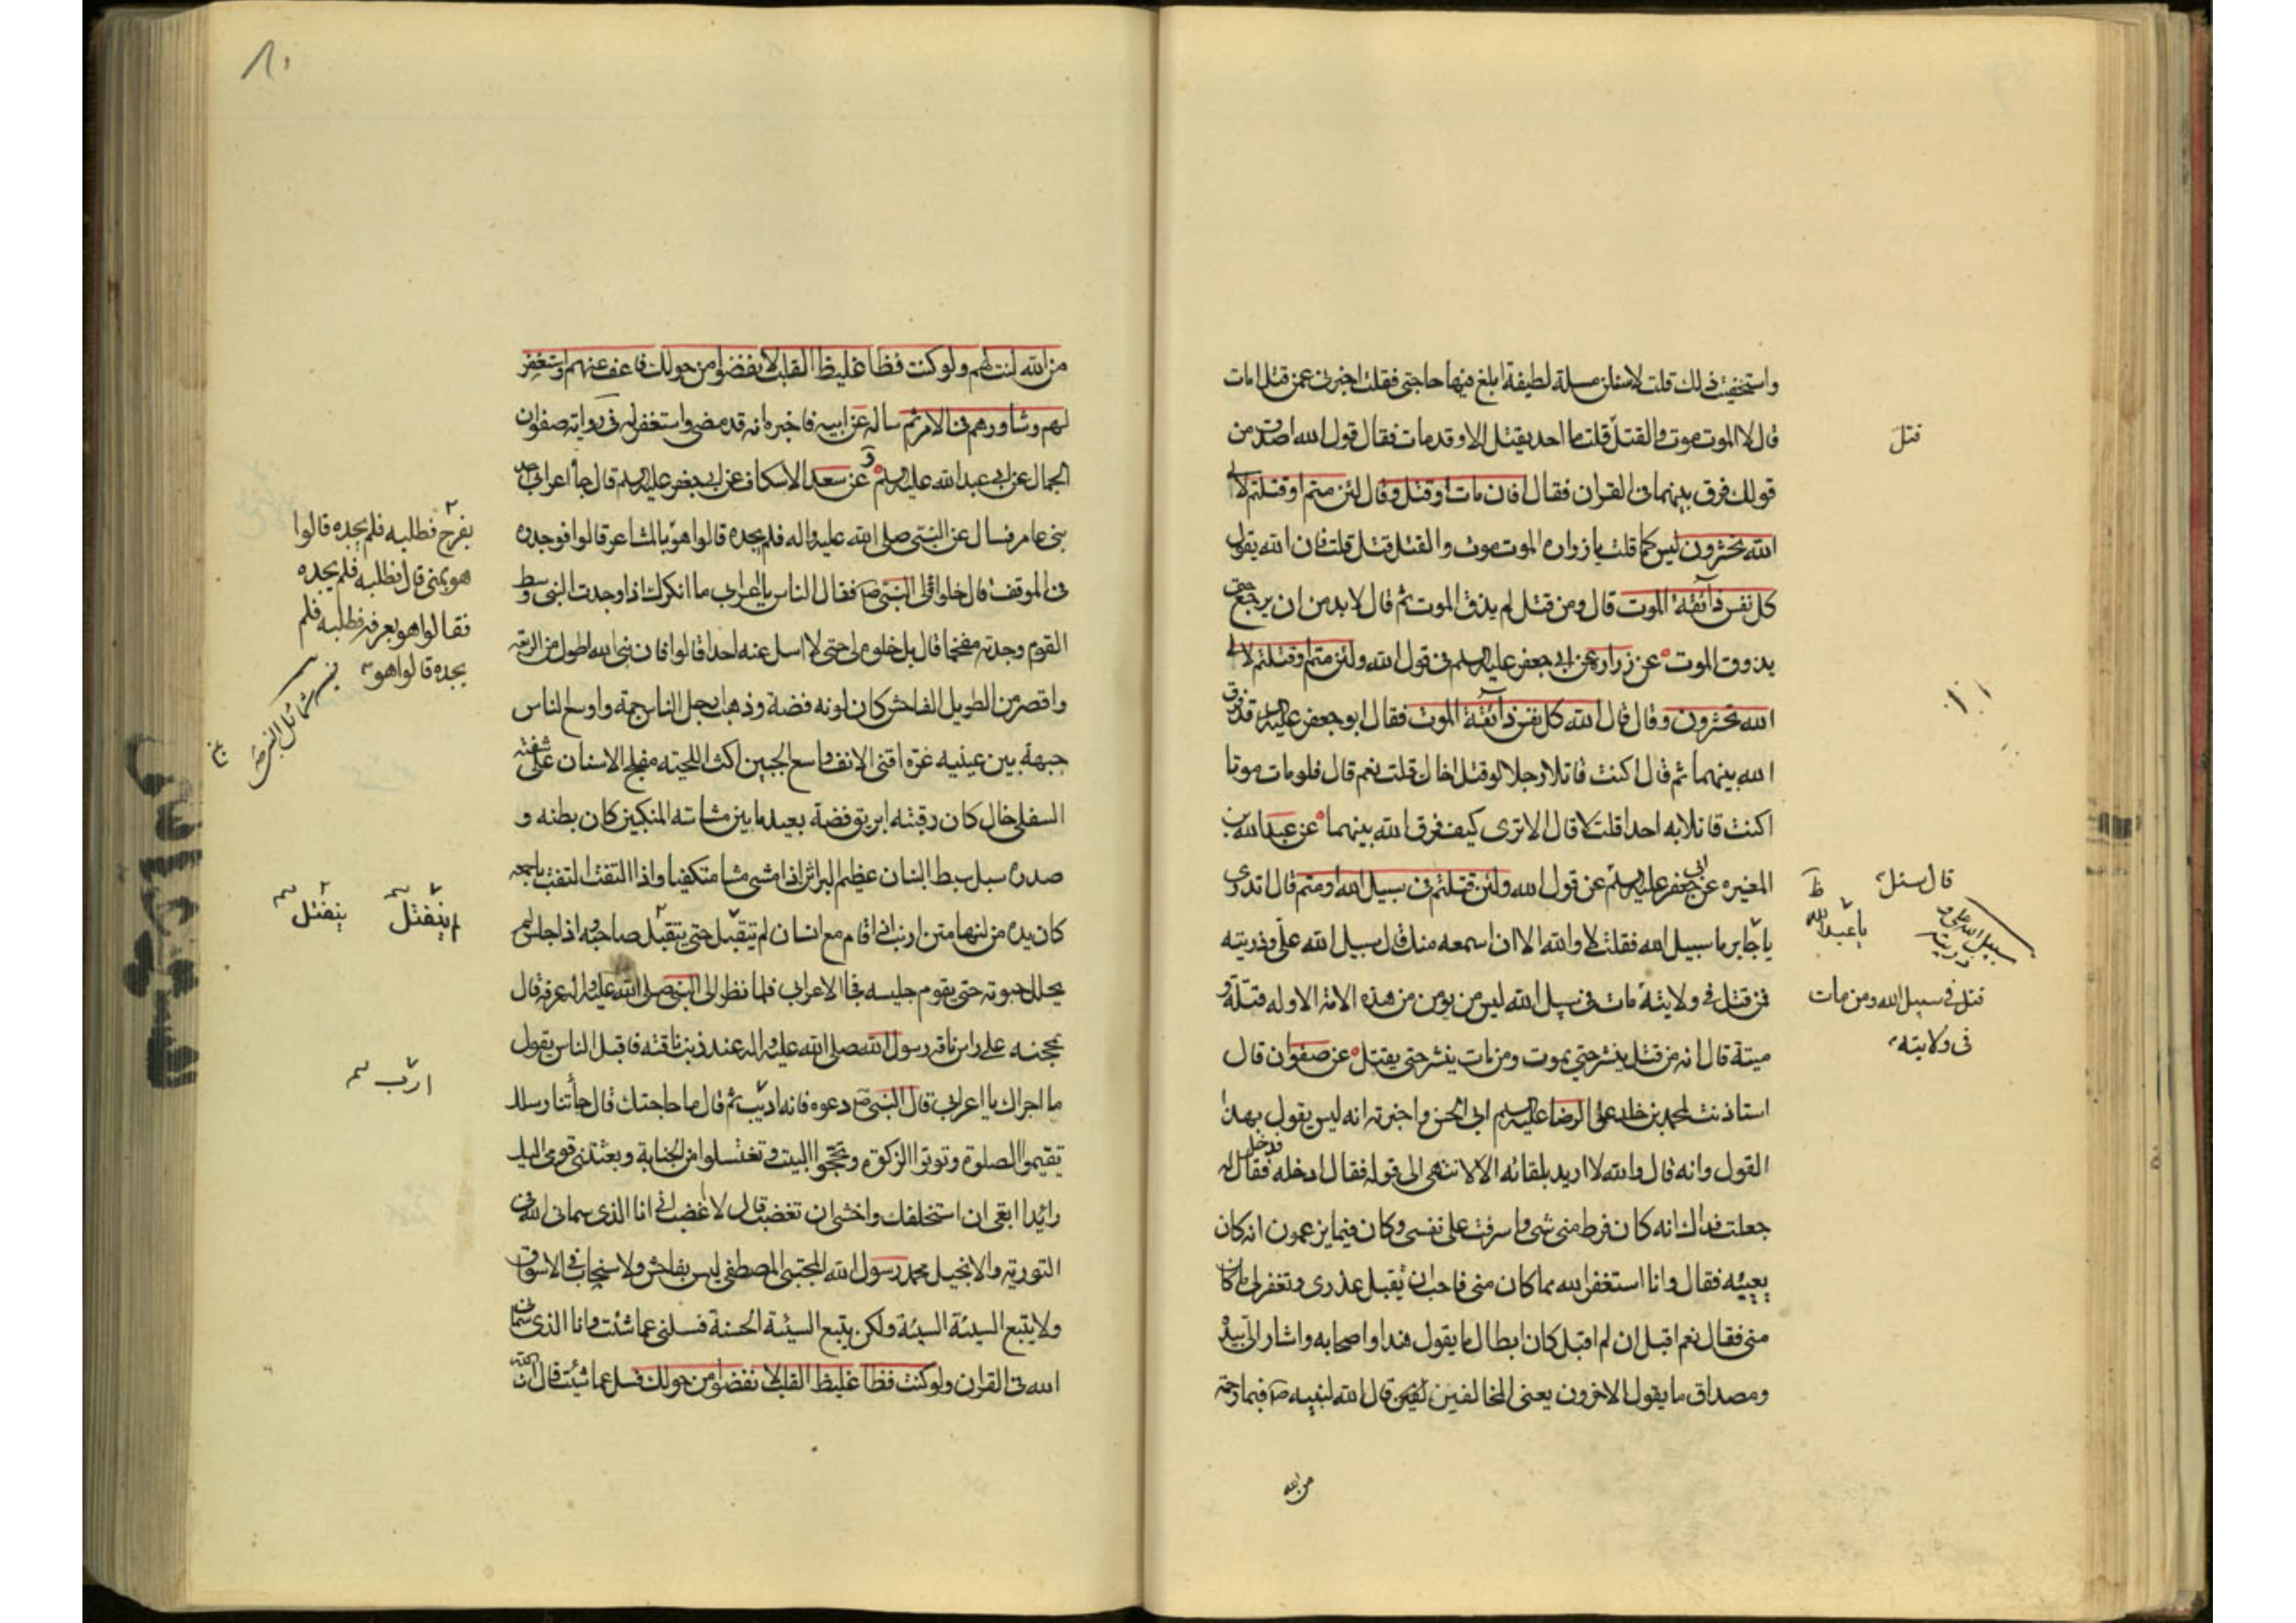 واستخفيت ذلك قلت لاسئلن مسئلة لطيفة ابلغ فيها حاجتى فقلت اخبرنى عمن قتل امات
قال لا الموت موت والقتل قتل قلت ما احد يقتل الا وقد مات فقال قول الله اصدق من
قتل
قولك فرق بينهما فى القران فقال افان مات او قتل وقال لئن متم او قتلتم لالى
الله تحشرون ليس كما قلت يا زراره الموت موت والقتل قتل قلت فان الله يقول
كل نفس ذآئقة الموت قال ومن قتل لم يذق الموت ثم قال لا بد من ان يرجع حتى
يذوق الموت عن زراره عن ابى جعفر عليه السلم فى قول الله ولئن متم او قتلتم لالى
الله تحشرون وقال قال الله كل نفس ذآئقة الموت فقال ابو جعفر عليه السلم قد فرق
الله بينهما ثم قال اكنت قاتلا رجلا لو قتل اخاك قلت نعم قال فلو مات موتا
اكنت قاتلا به احدا قلت لا قال الا ترى كيف فرق الله بينهما عن عبد الله بن
المغيره عن جعفر عليه السلم عن قول الله ولئن قتلتم فى سبيل الله او متم قال اتدرى
قال سئل
يا جابر ما سبيل الله فقلت لا والله الا ان اسمعه منك قال سبيل الله على وذريته
يا عبد الله
سبيل الله على و ذريته
فمن قتل فى ولايته مات فى سبيل الله ليس من يومن من هذه الامة الا وله قتلة و
قتل فى سبيل الله ومن مات
فى ولايته
ميتة قال انه من قتل ينشر حتى يموت ومن مات ينشر حتى يقتل عن صفوان قال
استاذنت لمحمد بن خالد على الرضا عليه السلم ابى الحسن واخبرته انه ليس يقول بهذا
القول وانه قال والله لا اريد بلقائه الا لانتهى الى قوله فقال ادخله فدخل فقال له
جعلت فداك انه كان فرط منى شى واسرفت على نفسى وكان فيما يزعمون انه كان
يعيبه فقال وانا استغفر الله مما كان منى فاحب ان تقبل عذرى وتغفر لى ما كان
منى فقال نعم اقبل ان لم اقبل كان ابطال ما يقول هذا واصحابه واشار الى بيده
ومصداق ما يقول الاخرون يعنى المخالفين قال الله لنبيه ص فبما رحمة
من الله
من الله لنت لهم ولو كنت فظا غليظ القلب لانفضوا من حولك فاعف عنهم واستغفر
لهم وشاورهم فى الامر ثم ساله عن ابيه فاخبره انه قد مضى واستغفر له فى رواية صفوان
الجمال عن ابى عبد الله عليه السلم وعن سعد الاسكاف عن ابى جعفر عليه السلم قال جا اعرابى احد
بنى عامر فسال عن النبى صلى الله عليه واله فلم يجده قالوا هو بالمشاعر قالوا فوجده
بقزح فطلبه فلم يجده قالوا
هو بمنى قال فطلبه فلم يجده
فقالوا هو بعرفة فطلبه فلم
يجده قالوا هو
فى الموقف قال حلوا لى النبى ص فقال الناس يا اعرابى ما انكرك اذا وجدت النبى وسط
القوم وجدته مفخما قال بل حلوه لى حتى لا اسل عنه احدا قالوا فان نبى الله اطول من الربعة
واقصر من الطويل الفاحش كان لونه فضة وذهب ارجل الناس جمة واوسع الناس
جبهة بين عينيه غرة اقنى الانف واسع الجبين اكث اللحية مفلج الاسنان على شفته
السفلى خال كان رقبته ابريق فضة بعيد ما بين مشاشة المنكبين كان بطنه و
صدره سبل سبط البنان عظيم البراثن اذا مشى مشا متكفيا واذا التفت التفت باجمعه
كان يده من لينها متن ارنب اذا قام مع انسان لم ينفتل حتى ينفتل صاحبه واذا جلس لم
لم ينفتل
ينفتل
يحلل حبوته حتى يقوم جليسه فجا الاعرابى فلما نظر الى النبى صلى الله عليه واله عرفه قال
بمحجنه على راس ناقة رسول الله صلى الله عليه واله عند ذنب ناقته فاقبل الناس يقول
ما اجراك يا اعرابى قال النبى ص دعوه فانه اديب ثم قال ما حاجتك قال جاتنا رسلك
ارب
تقيموا الصلوة وتوتوا الزكوة وتحجوا البيت وتغتسلوا من الجنابة وبعثنى قومى اليك
رائدا ابغى ان استحلفك واخشى ان تغضب قال لا اغضب انى انا الذى سمانى الله فى
التورية والانجيل محمد رسول الله المجتبى المصطفى ليس بفاحش ولا سخاب فى الاسواق
ولا يتبع السيئة السيئة ولكن يتبع السيئة الحسنة فسلنى عما شئت وانا الذى سمانى
الله فى القران ولو كنت فظا غليظ القلب لانفضوا من حولك فسل عما شئت قال ان الله